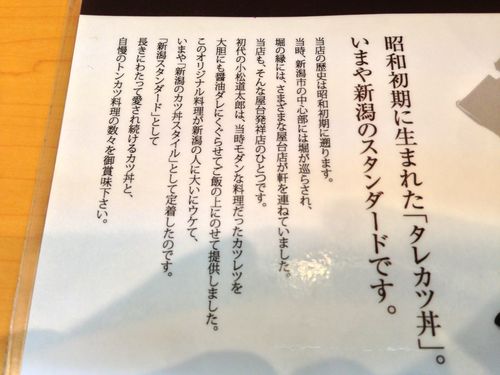 昭和初期に生まれた「タレカツ丼」。
いまや新潟のスタンダードです。
当店の歴史は昭和初期に遡ります。
当時、新潟市の中心部には堀が巡らされ、
堀の縁には、さまざまな屋台店が軒を連ねていました。
当店も、そんな屋台発祥店のひとつです。
初代の小松道太郎は、当時モダンな料理だったカツレツを
大胆にも醤油ダレにくぐらせてご飯の上にのせて提供しました。
このオリジナル料理が新潟の人に大いにウケて、
いまや「新潟のカツ丼スタイル」として定着したのです。
「新潟スタンダード」として
長きにわたって愛され続けるカツ丼と、
自慢のトンカツ料理の数々を御賞味下さい。